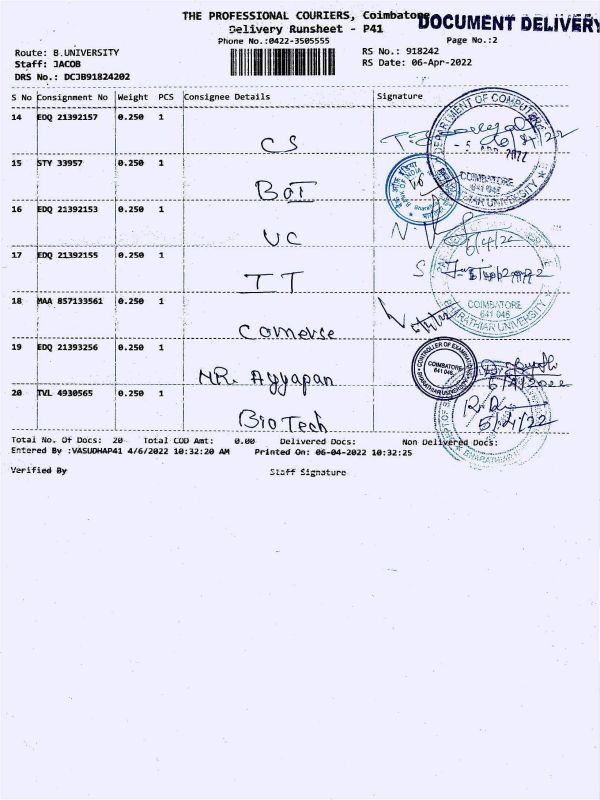 THE PROFESSIONAL COURIERS, Coimbatore
DOCUMENT DELIVERY
Delivery Runsheet - P41
Phone No.:0422-3505555
Page No.:2
Route: B.UNIVERSITY
RS No.: 918242
Staff: JACOB
RS Date: 06-Apr-2022
DRS No.: DCJB91824202
S No Consignment No Weight PCS Consignee Details Signature
14 EDQ 21392157 0.250 1
CS
15 STY 33957 0.250 1
BOI
16 EDQ 21392153 0.250 1
UC
17 EDQ 21392155 0.250 1
IT
18 MAA 857133561 0.250 1
Comerse
19 EDQ 21393256 0.250 1
MR. Ayyapan
20 TVL 4930565 0.250 1
BioTech
DEPARTMENT OF COMPUTER
COIMBATORE
641 046
BHARATHIAR UNIVERSITY
BANK OF INDIA
6/4/22
COIMBATORE
641 046
BHARATHIAR UNIVERSITY
CONTROLLER OF EXAMINATIONS
COIMBATORE
641 046
BHARATHIAR UNIVERSITY
6/4/2022
Total No. Of Docs: 20 Total COD Amt: 0.00 Delivered Docs: Non Delivered Docs:
Entered By :VASUDHAP41 4/6/2022 10:32:20 AM Printed On: 06-04-2022 10:32:25
Verified By Staff Signature